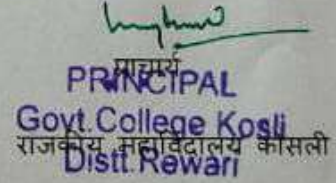 प्राचार्य
PRINCIPAL
Govt. College Kosli
राजकीय महाविद्यालय कोसली
Distt. Rewari